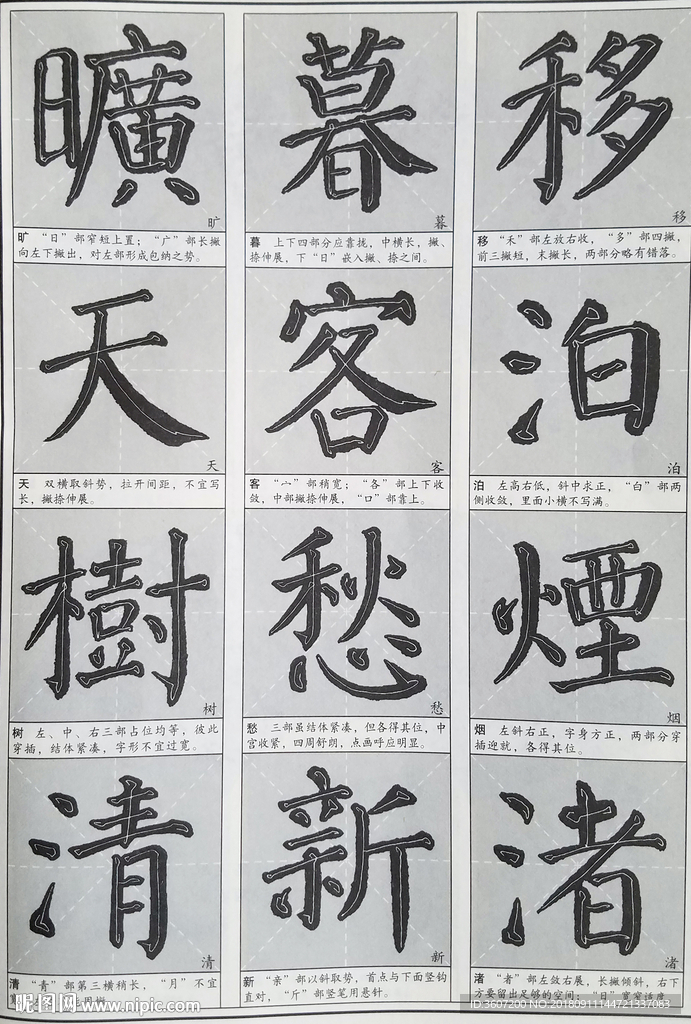 移
移
移 “禾”部左放右收，“多”部四撇，
前三撇短，末撇长，两部分略有错落。
泊
泊
泊 左高右低，斜中求正，“白”部两
侧收敛，里面小横不写满。
煙
烟
烟 左斜右正，字身方正，两部分穿
插迎就，各得其位。
渚
渚
渚 “者”部左敛右展，长撇倾斜，右下
方要留出足够的空间；
暮
暮
暮 上下四部分应靠拢，中横长，撇、
捺伸展，下“日”嵌入撇、捺之间。
客
客
客 “宀”部稍宽；“各”部上下收
敛，中部撇捺伸展，“口”部靠上。
愁
愁
愁 三部虽结体紧凑，但各得其位，中
宫收紧，四周舒朗，点画呼应明显。
新
新
新 “亲”部以斜取势，首点与下面竖钩
直对，“斤”部竖笔用悬针。
曠
旷
旷 “日”部窄短上置；“广”部长撇
向左下撇出，对左部形成包纳之势。
天
天
天 双横取斜势，拉开间距，不宜写
长，撇捺伸展。
樹
树
树 左、中、右三部占位均等，彼此
穿插，结体紧凑，字形不宜过宽。
清
清
清 “青”部第三横稍长，“月”不宜
昵图网 www.nipic.com
ID:3607200 NO:20180911144721337083